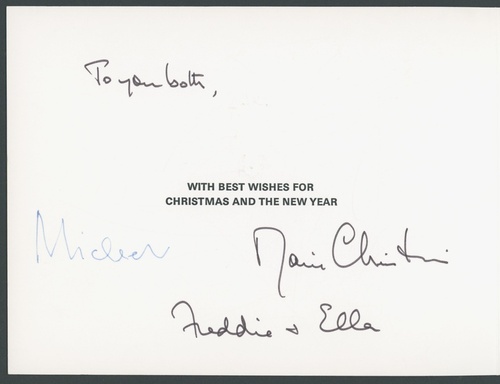 To you both,
WITH BEST WISHES FOR
CHRISTMAS AND THE NEW YEAR
Michael Marie Christine
Freddie & Ella